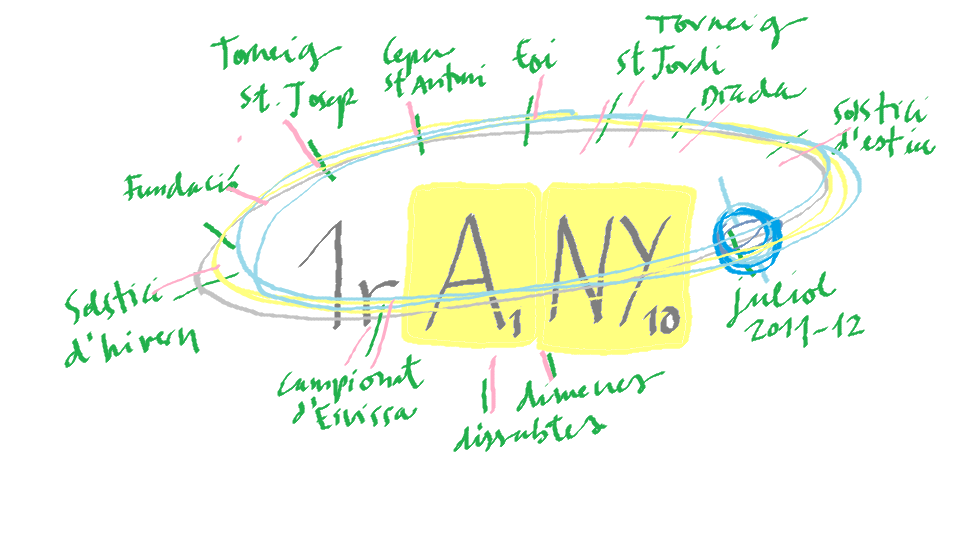 Torneig
st. Josep
Cepa
st Antoni
Eoi
Torneig
st Jordi
Diada
Solstici
d'estiu
Fundació
1r A1 NY10
Solstici
d'hivern
juliol
2011-12
Campionat
d'Eivissa
dimecres
dissabtes